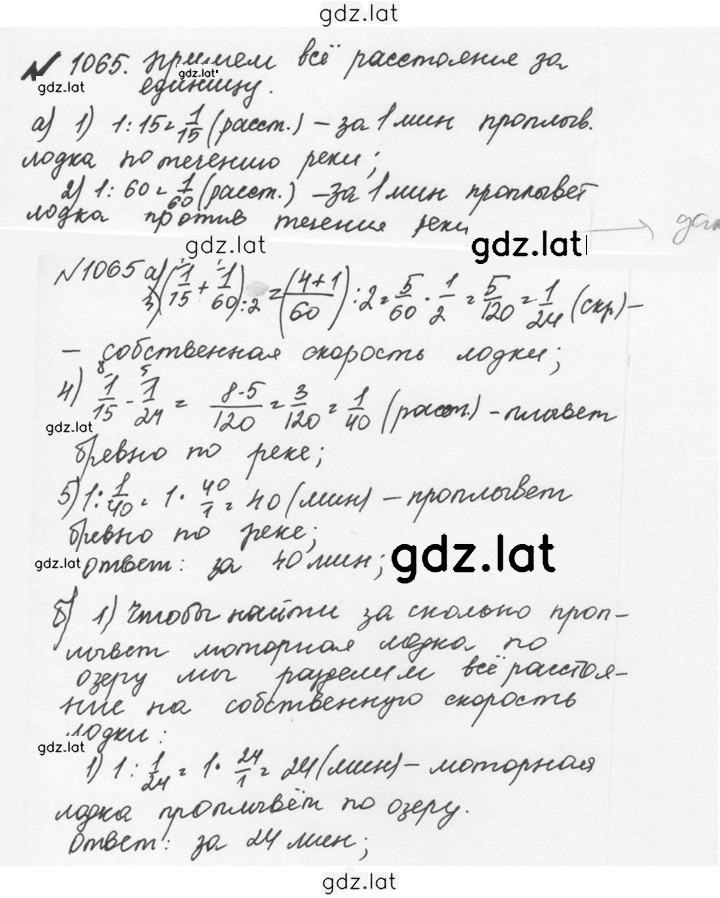 gdz.lat
№ 1065. примем всё расстояние за
gdz.lat
gdz.lat единицу.
а) 1) 1:15=1/15 (расст.) – за 1 мин проплыв.
лодка по течению реки;
2) 1:60=1/60 (расст.) – за 1 мин проплывет
gdz.lat
лодка против течения реки
gdz.lat gdz.lat
№1065 а) 3) (1/15 + 1/60):2 = ((4+1)/60):2 = 5/60 · 1/2 = 5/120 = 1/24 (скр) –
– собственная скорость лодки;
4) 1/15 - 1/24 = (8-5)/120 = 3/120 = 1/40 (расст.) – плывет
gdz.lat
бревно по реке;
5) 1:1/40 = 1 · 40/1 = 40 (мин) – проплывет
бревно по реке;
gdz.lat Ответ: за 40 мин; gdz.lat
б) 1) Чтобы найти за сколько проп-
лывет моторная лодка по
озеру мы разделим всё расстоя-
ние на собственную скорость
лодки:
gdz.lat
1) 1:1/24 = 1 · 24/1 = 24 (мин) – моторная
лодка проплывёт по озеру.
gdz.lat
Ответ: за 24 мин;
gdz.lat